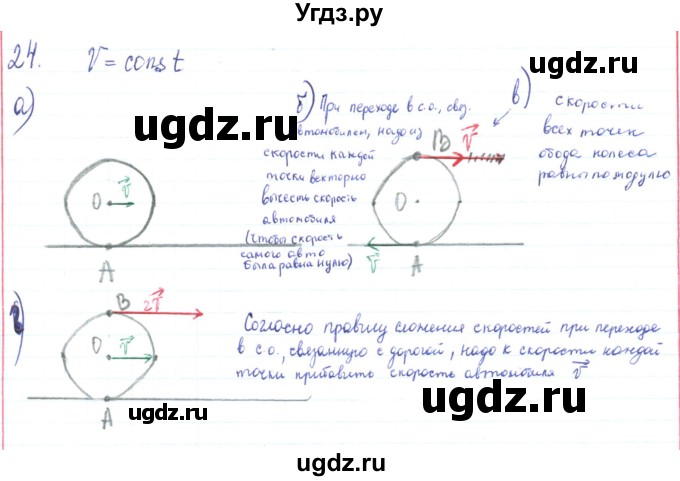 Угдз.ру
24. V = const
а)
б) При переходе в с.о., свяz.
автомобилем, надо из
скорости каждой
точки векторно
вычесть скорость
автомобиля
(чтобы скорость
самого авто
была равна нулю)
в) скорости
всех точек
обода колеса
равны по модулю
B V
O V
A
O
V A
г)
B 2V
O V
A
Согласно правилу сложения скоростей при переходе
в с.о., связанную с дорогой, надо к скорости каждой
точки прибавить скорость автомобиля V
ugdz.ru
ugdz.ru
ugdz.ru
ugdz.ru
ugdz.ru
ugdz.ru
ugdz.ru
ugdz.ru